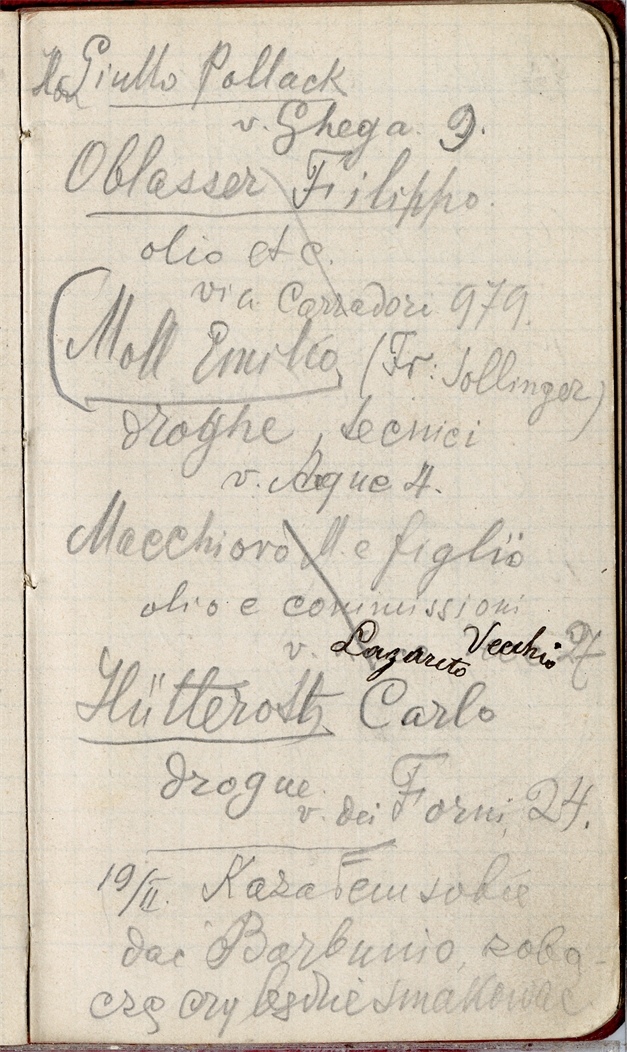 Giulio Pollack
v. Ghega. 9.
Oblasser Filippo.
olio etc.
via Carradori 979.
Moll Emilio (Fr: Sollinger)
droghe, tecnici
v. Acque 4.
Macchioro M. e figlio
olio e commissioni
v. Lazareto Vecchio 27
Hütterott Carlo
drogue.
v. dei Forni, 24.
19/II. Kazałem sobie
dać Barbunio, zoba-
czę czy będzie smakować